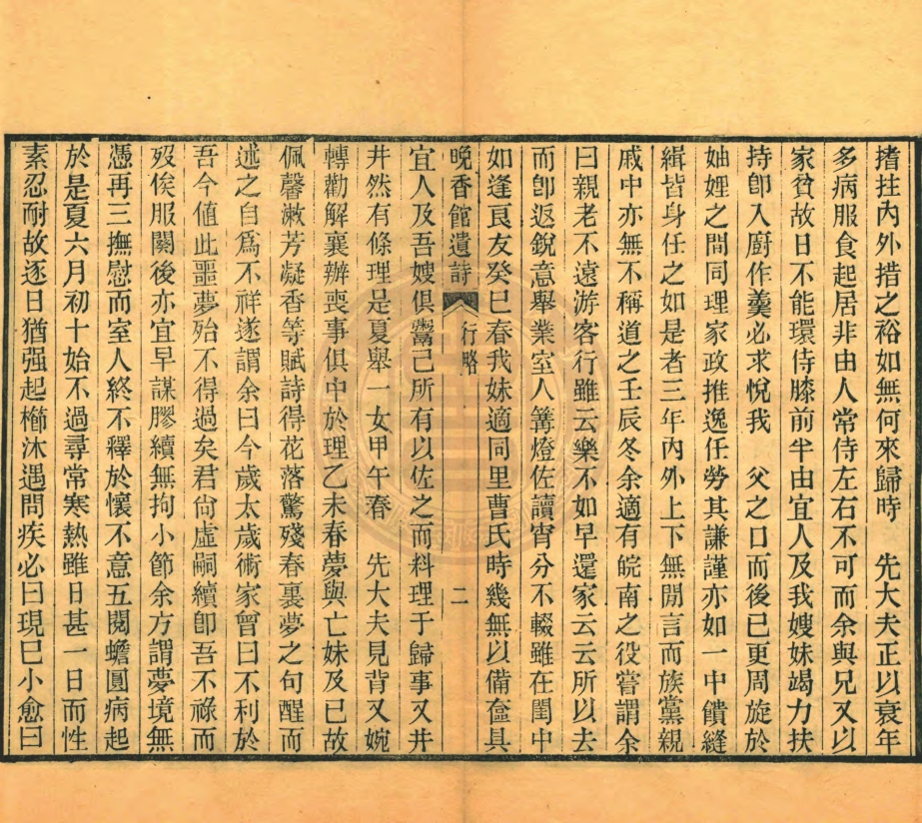 搘拄內外措之裕如無何來歸時　先大夫正以衰年
多病服食起居非由人常侍左右不可而余與兄又以
家貧故日不能環侍膝前半由宜人及我嫂妹竭力扶
持卽入廚作羹必求悅我　父之口而後已更周旋於
妯娌之間同理家政推逸任勞其謙謹亦如一中饋縫
緝皆身任之如是者三年內外上下無閒言而族黨親
戚中亦無不稱道之壬辰冬余適有皖南之役嘗謂余
曰親老不遠游客行雖云樂不如早還家云云所以去
而卽返銳意舉業室人篝燈佐讀宵分不輟雖在閨中
如逢良友癸巳春我妹適同里曹氏時幾無以備奩具
晚香館遺詩　行略　二
宜人及吾嫂俱鬻己所有以佐之而料理于歸事又井
井然有條理是夏舉一女甲午春　先大夫見背又婉
轉勸解襄辦喪事俱中於理乙未春夢與亡妹及已故
佩馨漱芳凝香等賦詩得花落驚殘春裏夢之句醒而
述之自爲不祥遂謂余曰今歲太歲術家曾曰不利於
吾今値此噩夢殆不得過矣君尙虛嗣續卽吾不祿而
歿俟服闋後亦宜早謀膠續無拘小節余方謂夢境無
憑再三撫慰而室人終不釋於懷不意五閱蟾圓病起
於是夏六月初十始不過尋常寒熱雖日甚一日而性
素忍耐故逐日猶强起櫛沐遇問疾必曰現已小愈曰